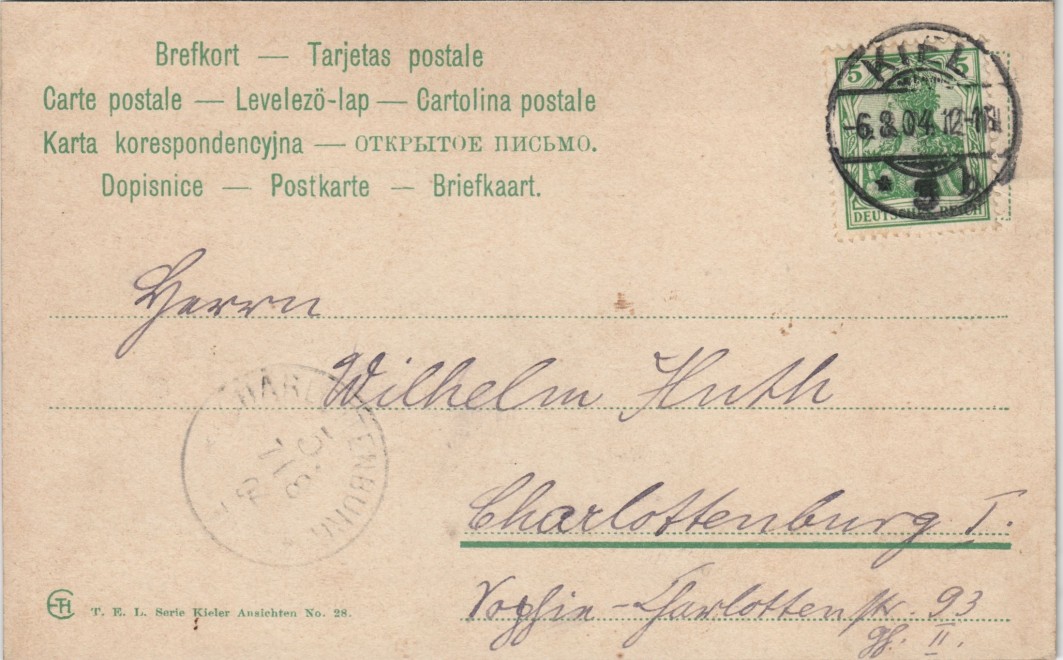 Brefkort — Tarjetas postale
Carte postale — Levelezö-lap — Cartolina postale
Karta korespondencyjna — ОТКРЫТОЕ ПИСЬМО.
Dopisnice — Postkarte — Briefkaart.
5 5
DEUTSCHES REICH
KIEL
-6.8.04. 12-1
* 3
Herrn
Wilhelm Huth
Charlottenburg I.
Sophie-Charlottenstr. 93
II.
CHARLOTTENBURG
7/8
ETH T. E. L. Serie Kieler Ansichten No. 28.